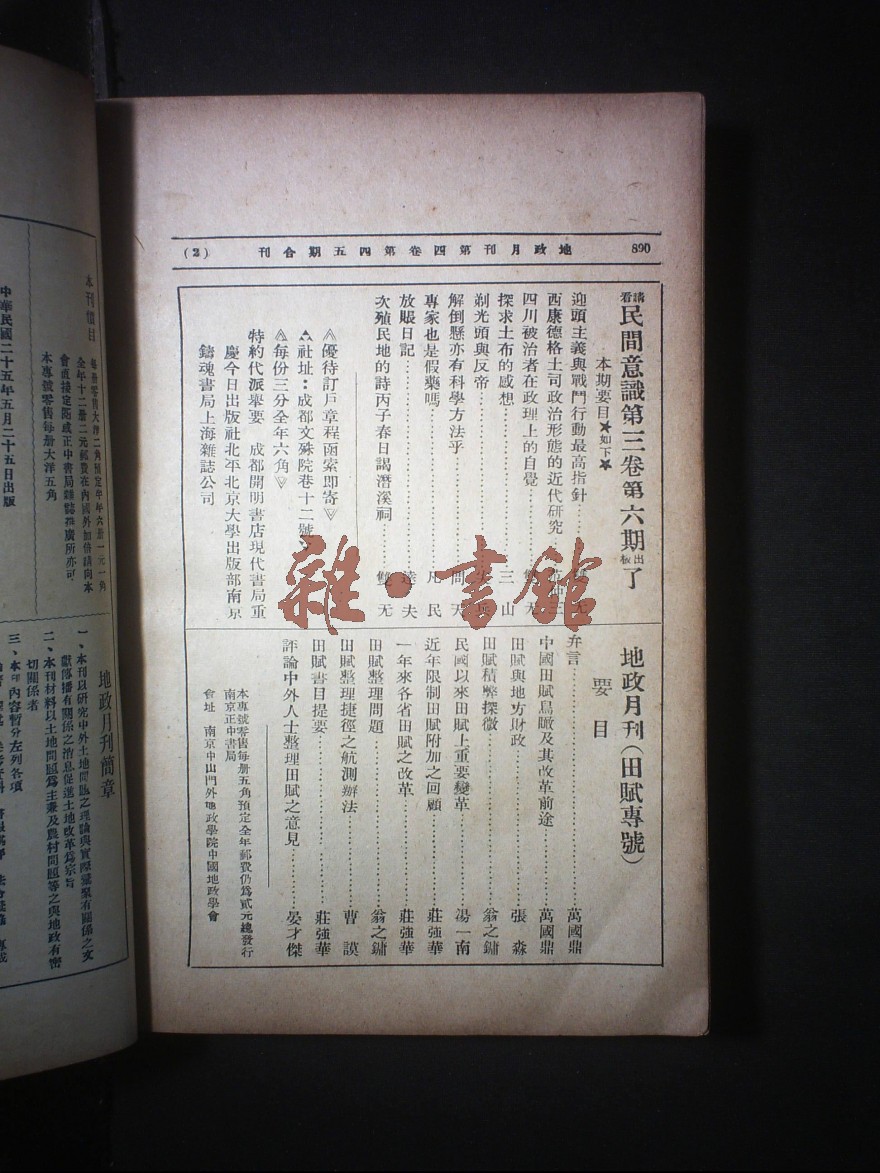 890
地政月刊第四卷第四五期合刊
(2)
請看民間意識第三卷第六期出板了
本期要目★如下★
迎頭主義與戰鬥行動最高指針
西康德格土司政治形態的近代研究
四川被治者在政理上的自覺
探求土布的感想 三山
剃光頭與反帝
解倒懸亦有科學方法乎 問天
專家也是假藥嗎 凡民
放賬日記 遠夫
次殖民地的詩丙子春日謁潛溪祠 雙无
《優待訂戶章程函索即寄》
社址:成都文殊院巷十二號
《每份三分全年六角》
特約代派舉要 成都開明書店現代書局重
慶今日出版社北平北京大學出版部南京
鑄魂書局上海雜誌公司
地政月刊(田賦專號)
要目
弁言 萬國鼎
中國田賦鳥瞰及其改革前途 萬國鼎
田賦與地方財政 張淼
田賦積弊探微 翁之鏞
民國以來田賦上重要變革 湯一南
近年限制田賦附加之回顧 莊強華
一年來各省田賦之改革 莊強華
田賦整理問題 翁之鏞
田賦整理捷徑之航測辦法 曹謨
田賦書目提要 莊強華
評論中外人士整理田賦之意見 晏才傑
本專號零售每册五角預定全年郵費仍爲貳元總發行
南京正中書局
會址 南京中山門外地政學院中國地政學會
本刊價目
每册零售大洋二角預定半年六册一元一角
全年十二册二元郵費在內國外加倍請向本
會直接定閱或正中書局雜誌推廣所亦可
本專號零售每册大洋五角
中華民國二十五年五月二十五日出版
地政月刊簡章
一、本刊以研究中外土地問題之理論與實際彙聚有關係之文
獻傳播有關係之消息促進土地改革爲宗旨
二、本刊材料以土地問題爲主兼及農村問題等之與地政有密
切關係者
三、本刊內容暫分左列各項
雜·書館